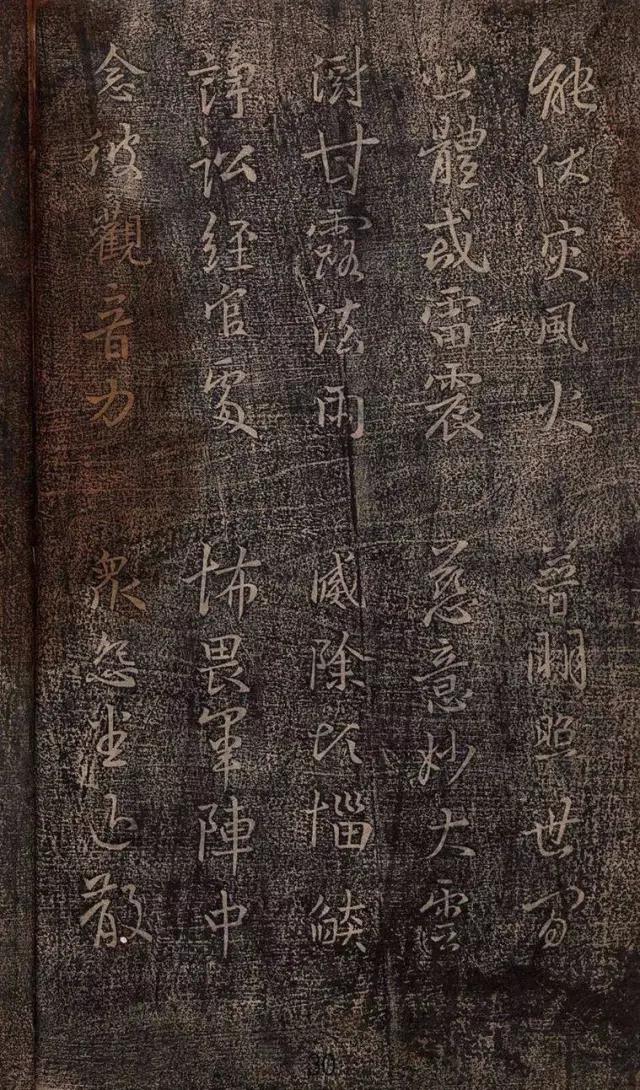 能伏灾風火 普明照世間
悲體戒雷震 慈意妙大雲
澍甘露法雨 滅除煩惱燄
諍訟經官處 怖畏軍陣中
念彼觀音力 眾怨悉退散
30